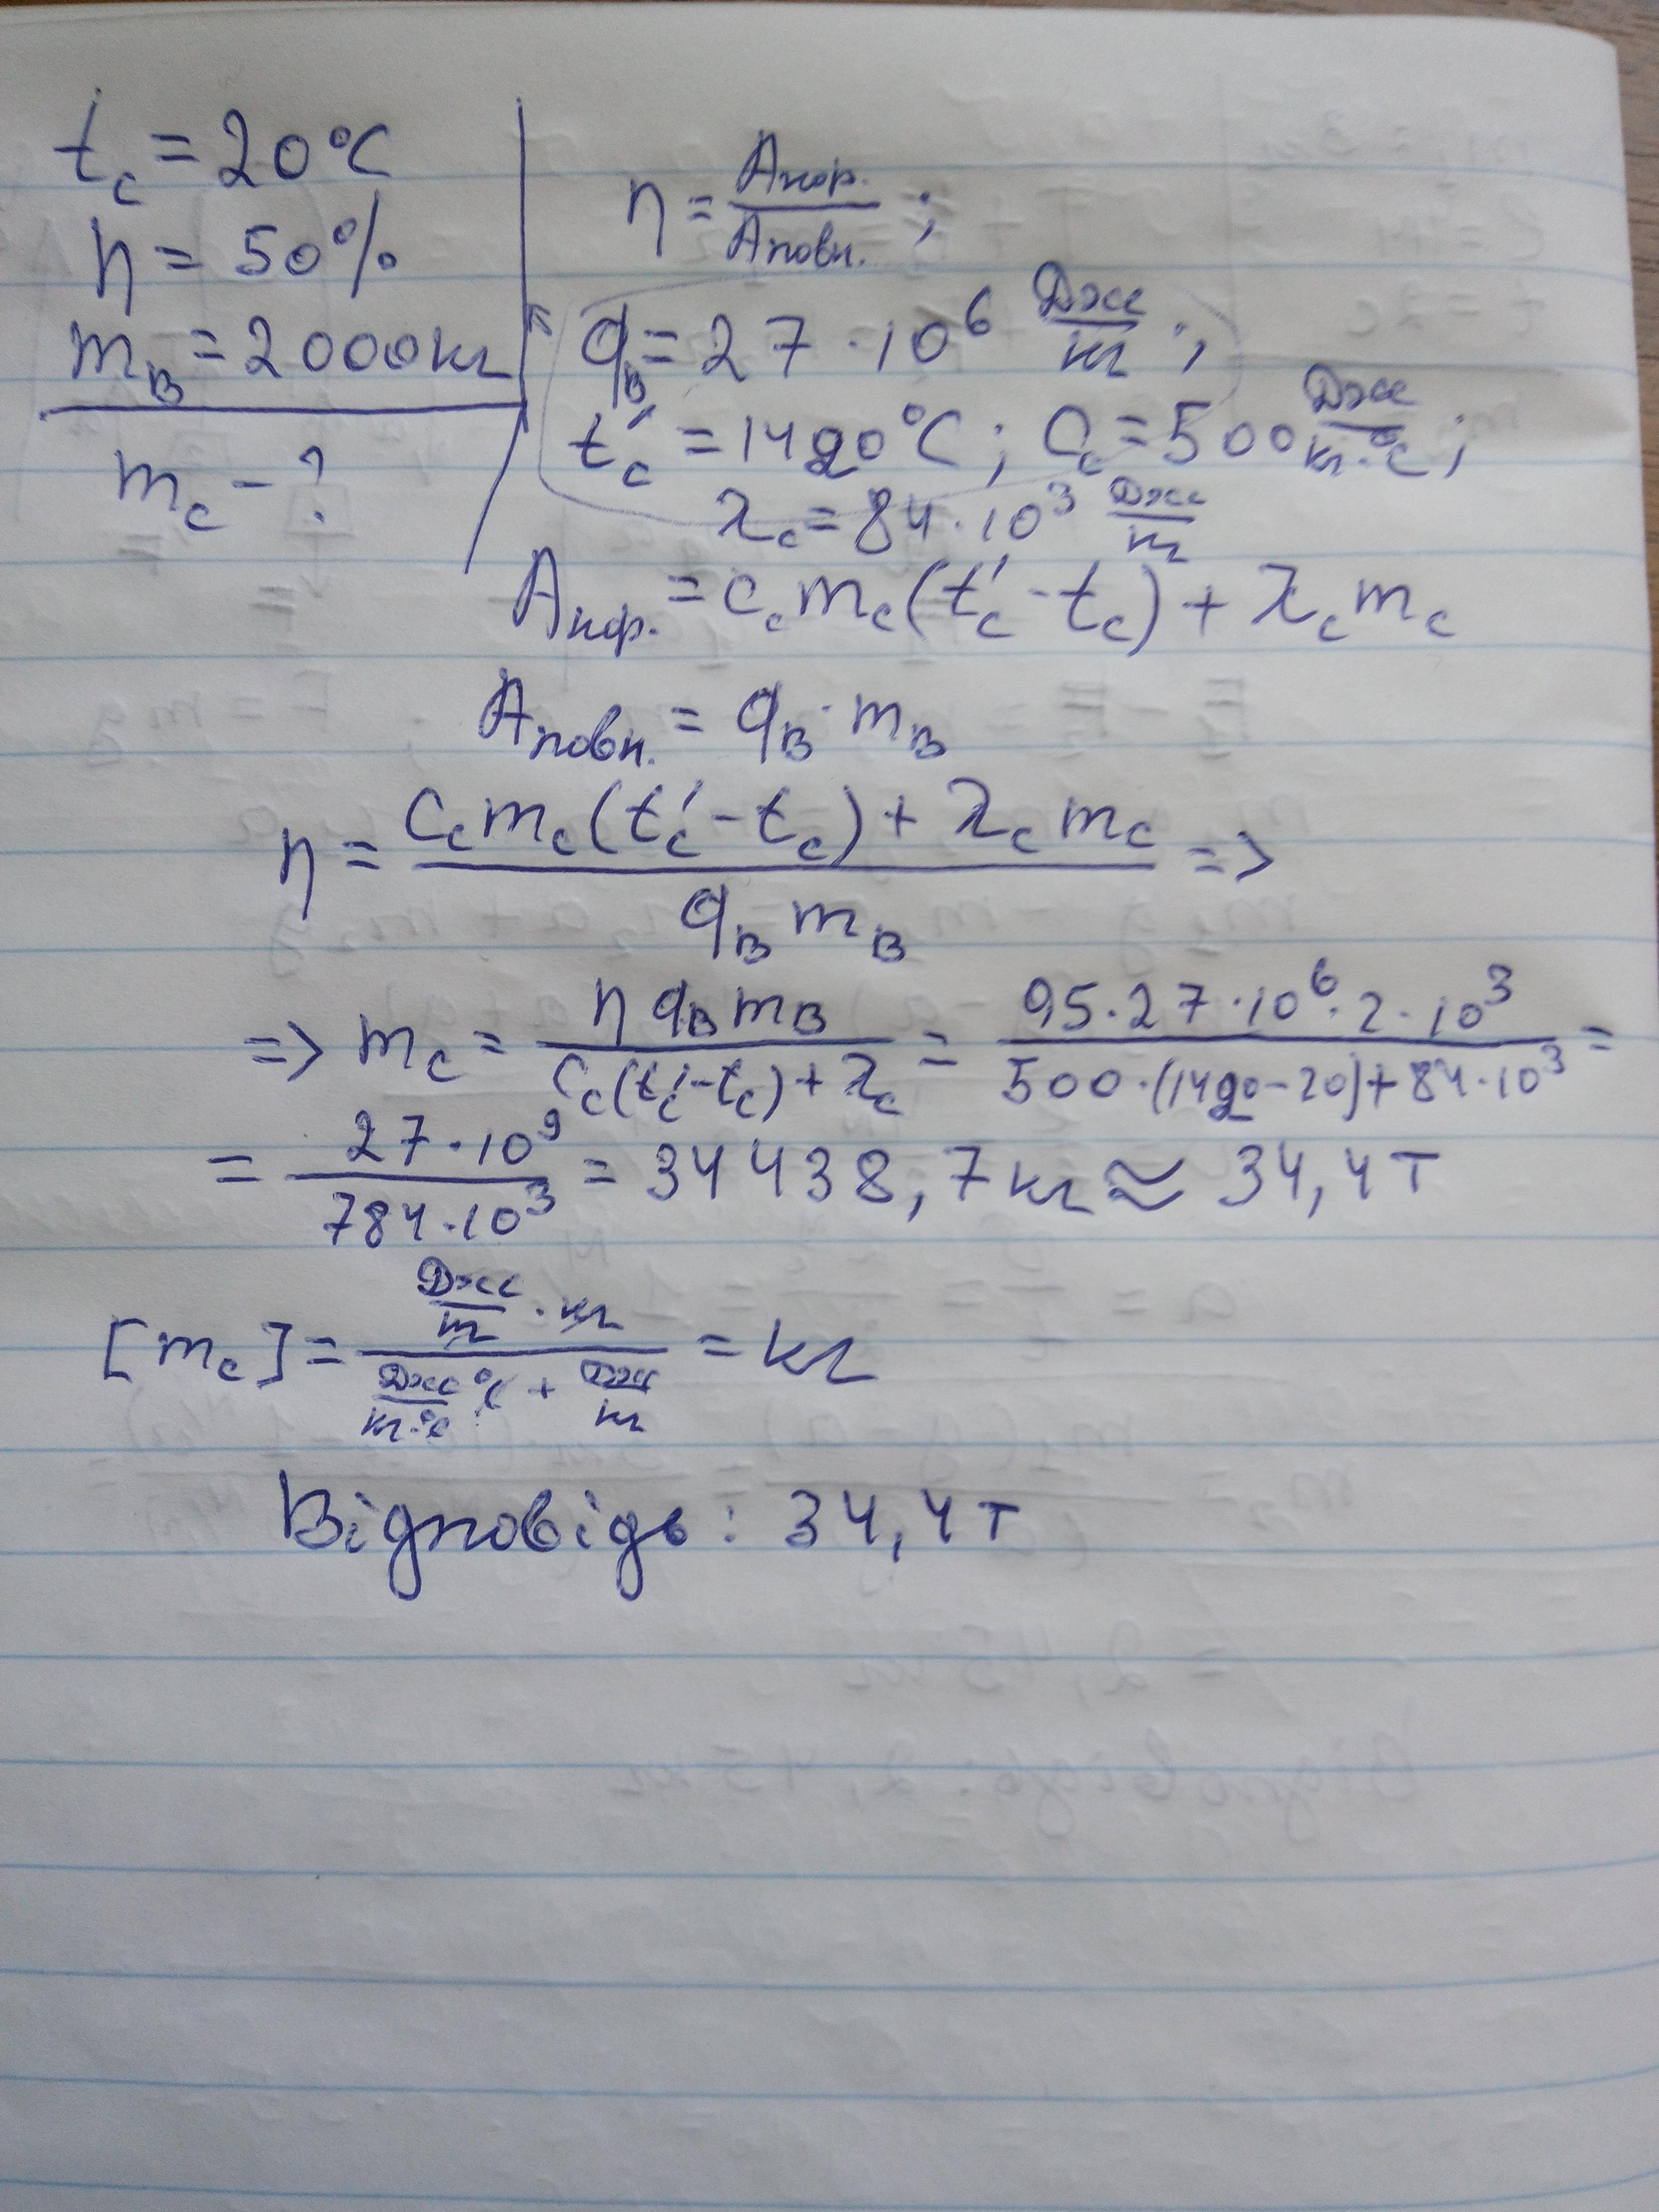 t_c = 20°C
η = 50%
m_в = 2000кг
m_c - ?
η = Aкор. / Aповн. ;
q_в = 27 · 10⁶ Дж/кг ;
t'_c = 1420°C ; C_c = 500 Дж/кг·°C ;
λ_c = 84 · 10³ Дж/кг
Aкор. = c_c m_c (t'_c - t_c) + λ_c m_c
Aповн. = q_в · m_в
η = (C_c m_c (t'_c - t_c) + λ_c m_c) / (q_в m_в) =>
=> m_c = (η q_в m_в) / (C_c (t'_c - t_c) + λ_c) = (0,5 · 27 · 10⁶ · 2 · 10³) / (500 · (1420 - 20) + 84 · 10³) =
= (27 · 10⁹) / (784 · 10³) = 34438,7 кг ≈ 34,4 т
[m_c] = (Дж/кг · кг) / (Дж/кг·°C · °C + Дж/кг) = кг
Відповідь: 34,4 т